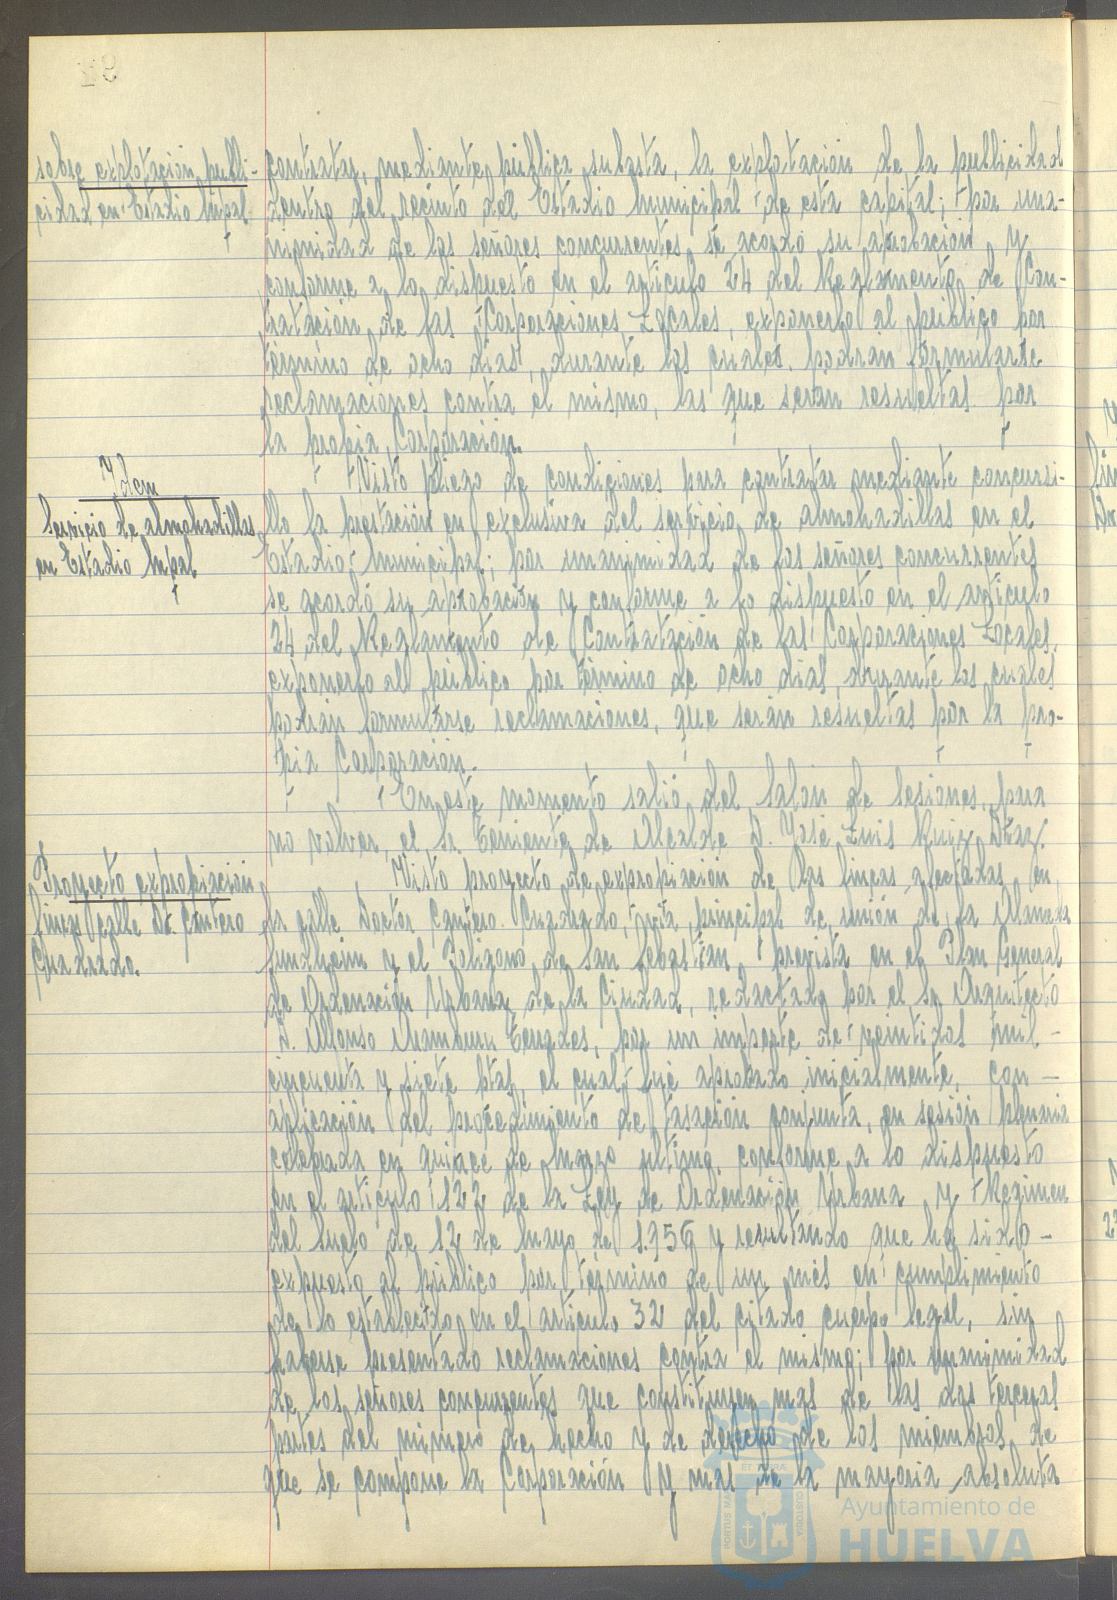 sobre explotación publi-
cidad en Estadio Mpal.
contratar, mediante pública subasta, la explotación de la publicidad
dentro del recinto del Estadio Municipal de esta capital; por una-
nimidad de los señores concurrentes se acordó su aprobación y
conforme a lo dispuesto en el artículo 24 del Reglamento de Con-
tratación de las Corporaciones Locales, exponerlo al público por
término de ocho días, durante los cuales podrán formularse
reclamaciones contra el mismo, las que serán resueltas por
la propia Corporación.
Idem
Servicio de almohadillas
en Estadio Mpal.
Visto pliego de condiciones para contratar mediante concursi-
llo la prestación en exclusiva del servicio de almohadillas en el
Estadio Municipal; por unanimidad de los señores concurrentes
se acordó su aprobación y conforme a lo dispuesto en el artículo
24 del Reglamento de Contratación de las Corporaciones Locales,
exponerlo al público por término de ocho días, durante los cuales
podrán formularse reclamaciones, que serán resueltas por la pro-
pia Corporación.
En este momento salió del Salón de Sesiones, para
no volver, el Sr. Teniente de Alcalde D. José Luis Ruiz Díaz.
Proyecto expropiación
fincas calle Dr. Cantero
Cuadrado.
Visto proyecto de expropiación de las fincas afectadas en
la calle Doctor Cantero Cuadrado, vía principal de unión de la Alameda
Sundheim y el Polígono de San Sebastián, prevista en el Plan General
de Ordenación Urbana de la Ciudad, redactado por el Sr. Arquitecto
D. Alfonso Aramburu Terrades, por un importe de veintidos mil -
cincuenta y siete ptas, el cual fué aprobado inicialmente, con -
aplicación del procedimiento de tasación conjunta, en sesión plenaria
celebrada en quince de Marzo último, conforme a lo dispuesto
en el artículo 122 de la Ley de Ordenación Urbana y Régimen
del Suelo de 12 de Mayo de 1.956 y resultando que ha sido -
expuesto al público por término de un mes en cumplimiento
de lo establecido en el artículo 32 del citado cuerpo legal, sin
haberse presentado reclamaciones contra el mismo; por unanimidad
de los señores concurrentes que constituyen mas de las dos terceras
partes del número de hecho y de derecho de los miembros de
que se compone la Corporación y mas de la mayoría absoluta
Ayuntamiento de
HUELVA